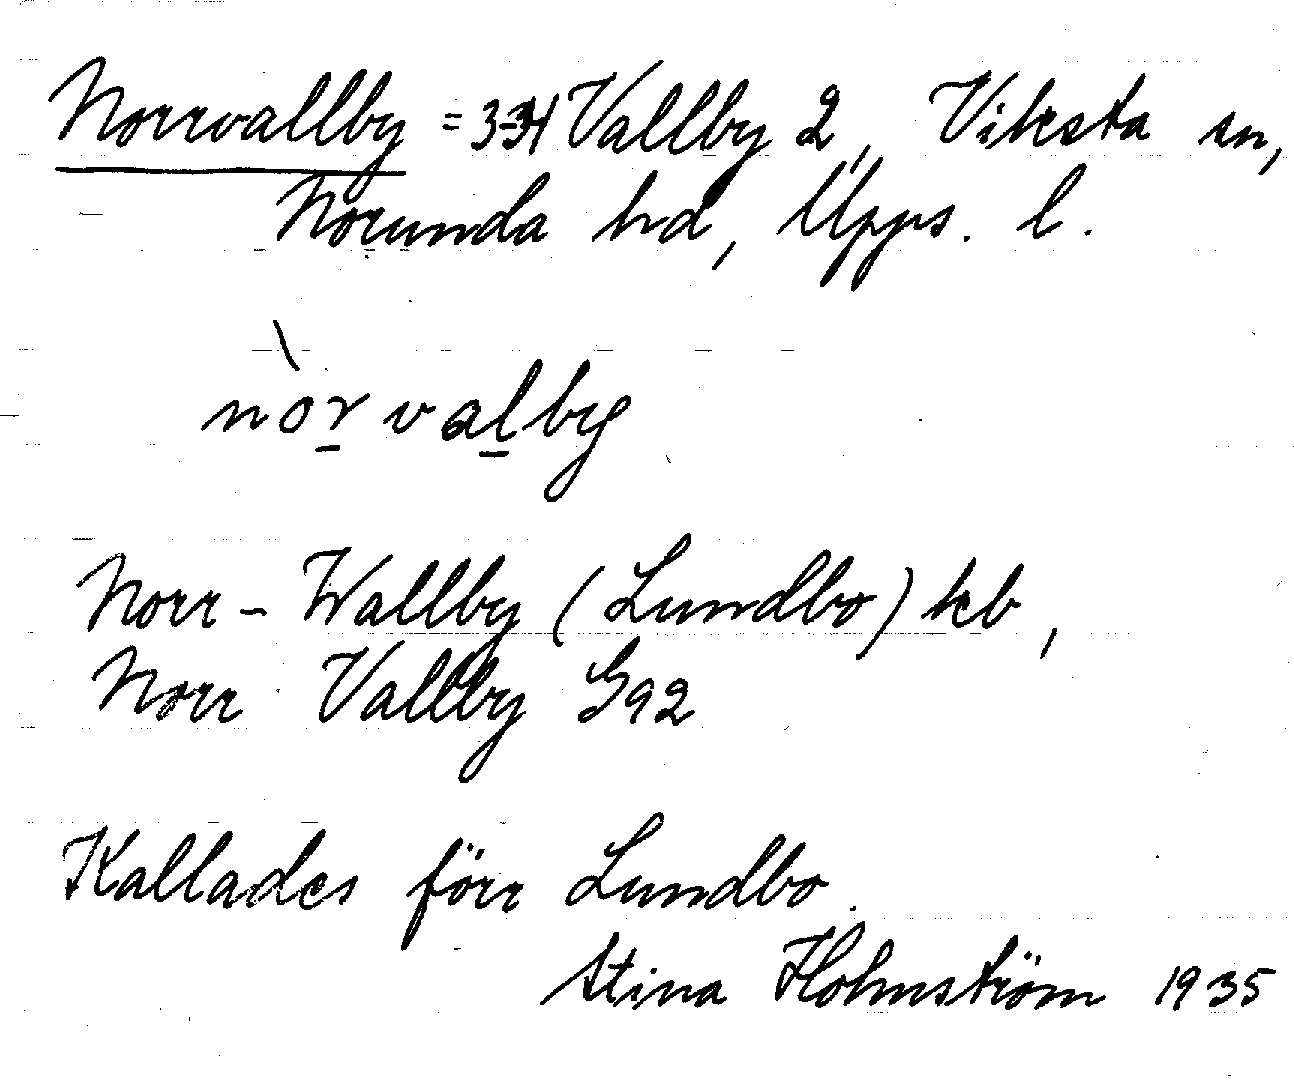 Norrvallby = 3-34 Vallby 2, Viksta sn,
Norunda hd, Upps. l.
nòr̲ val̲by
Norr-Wallby (Lundbo) kb,
Norr Vallby G92
Kallades förr Lundbo.
Stina Holmström 1935